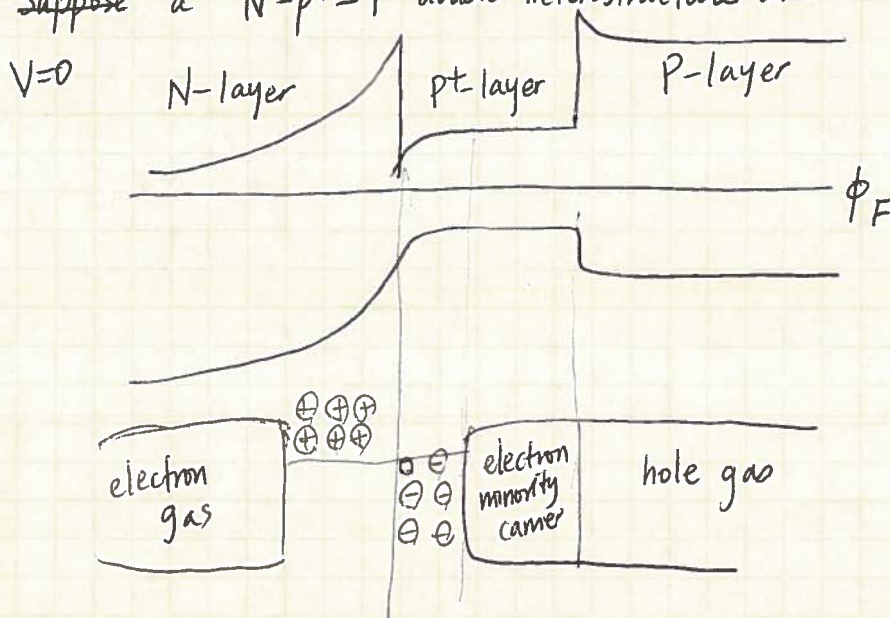 Suppose a N-p+-P double heterostructure
V=0
N-layer
p+-layer
P-layer
ϕF
⊕ ⊕ ⊕
⊕ ⊕ ⊕
electron gas
⊖
⊖ ⊖
⊖ ⊖
electron minority carrier
hole gas